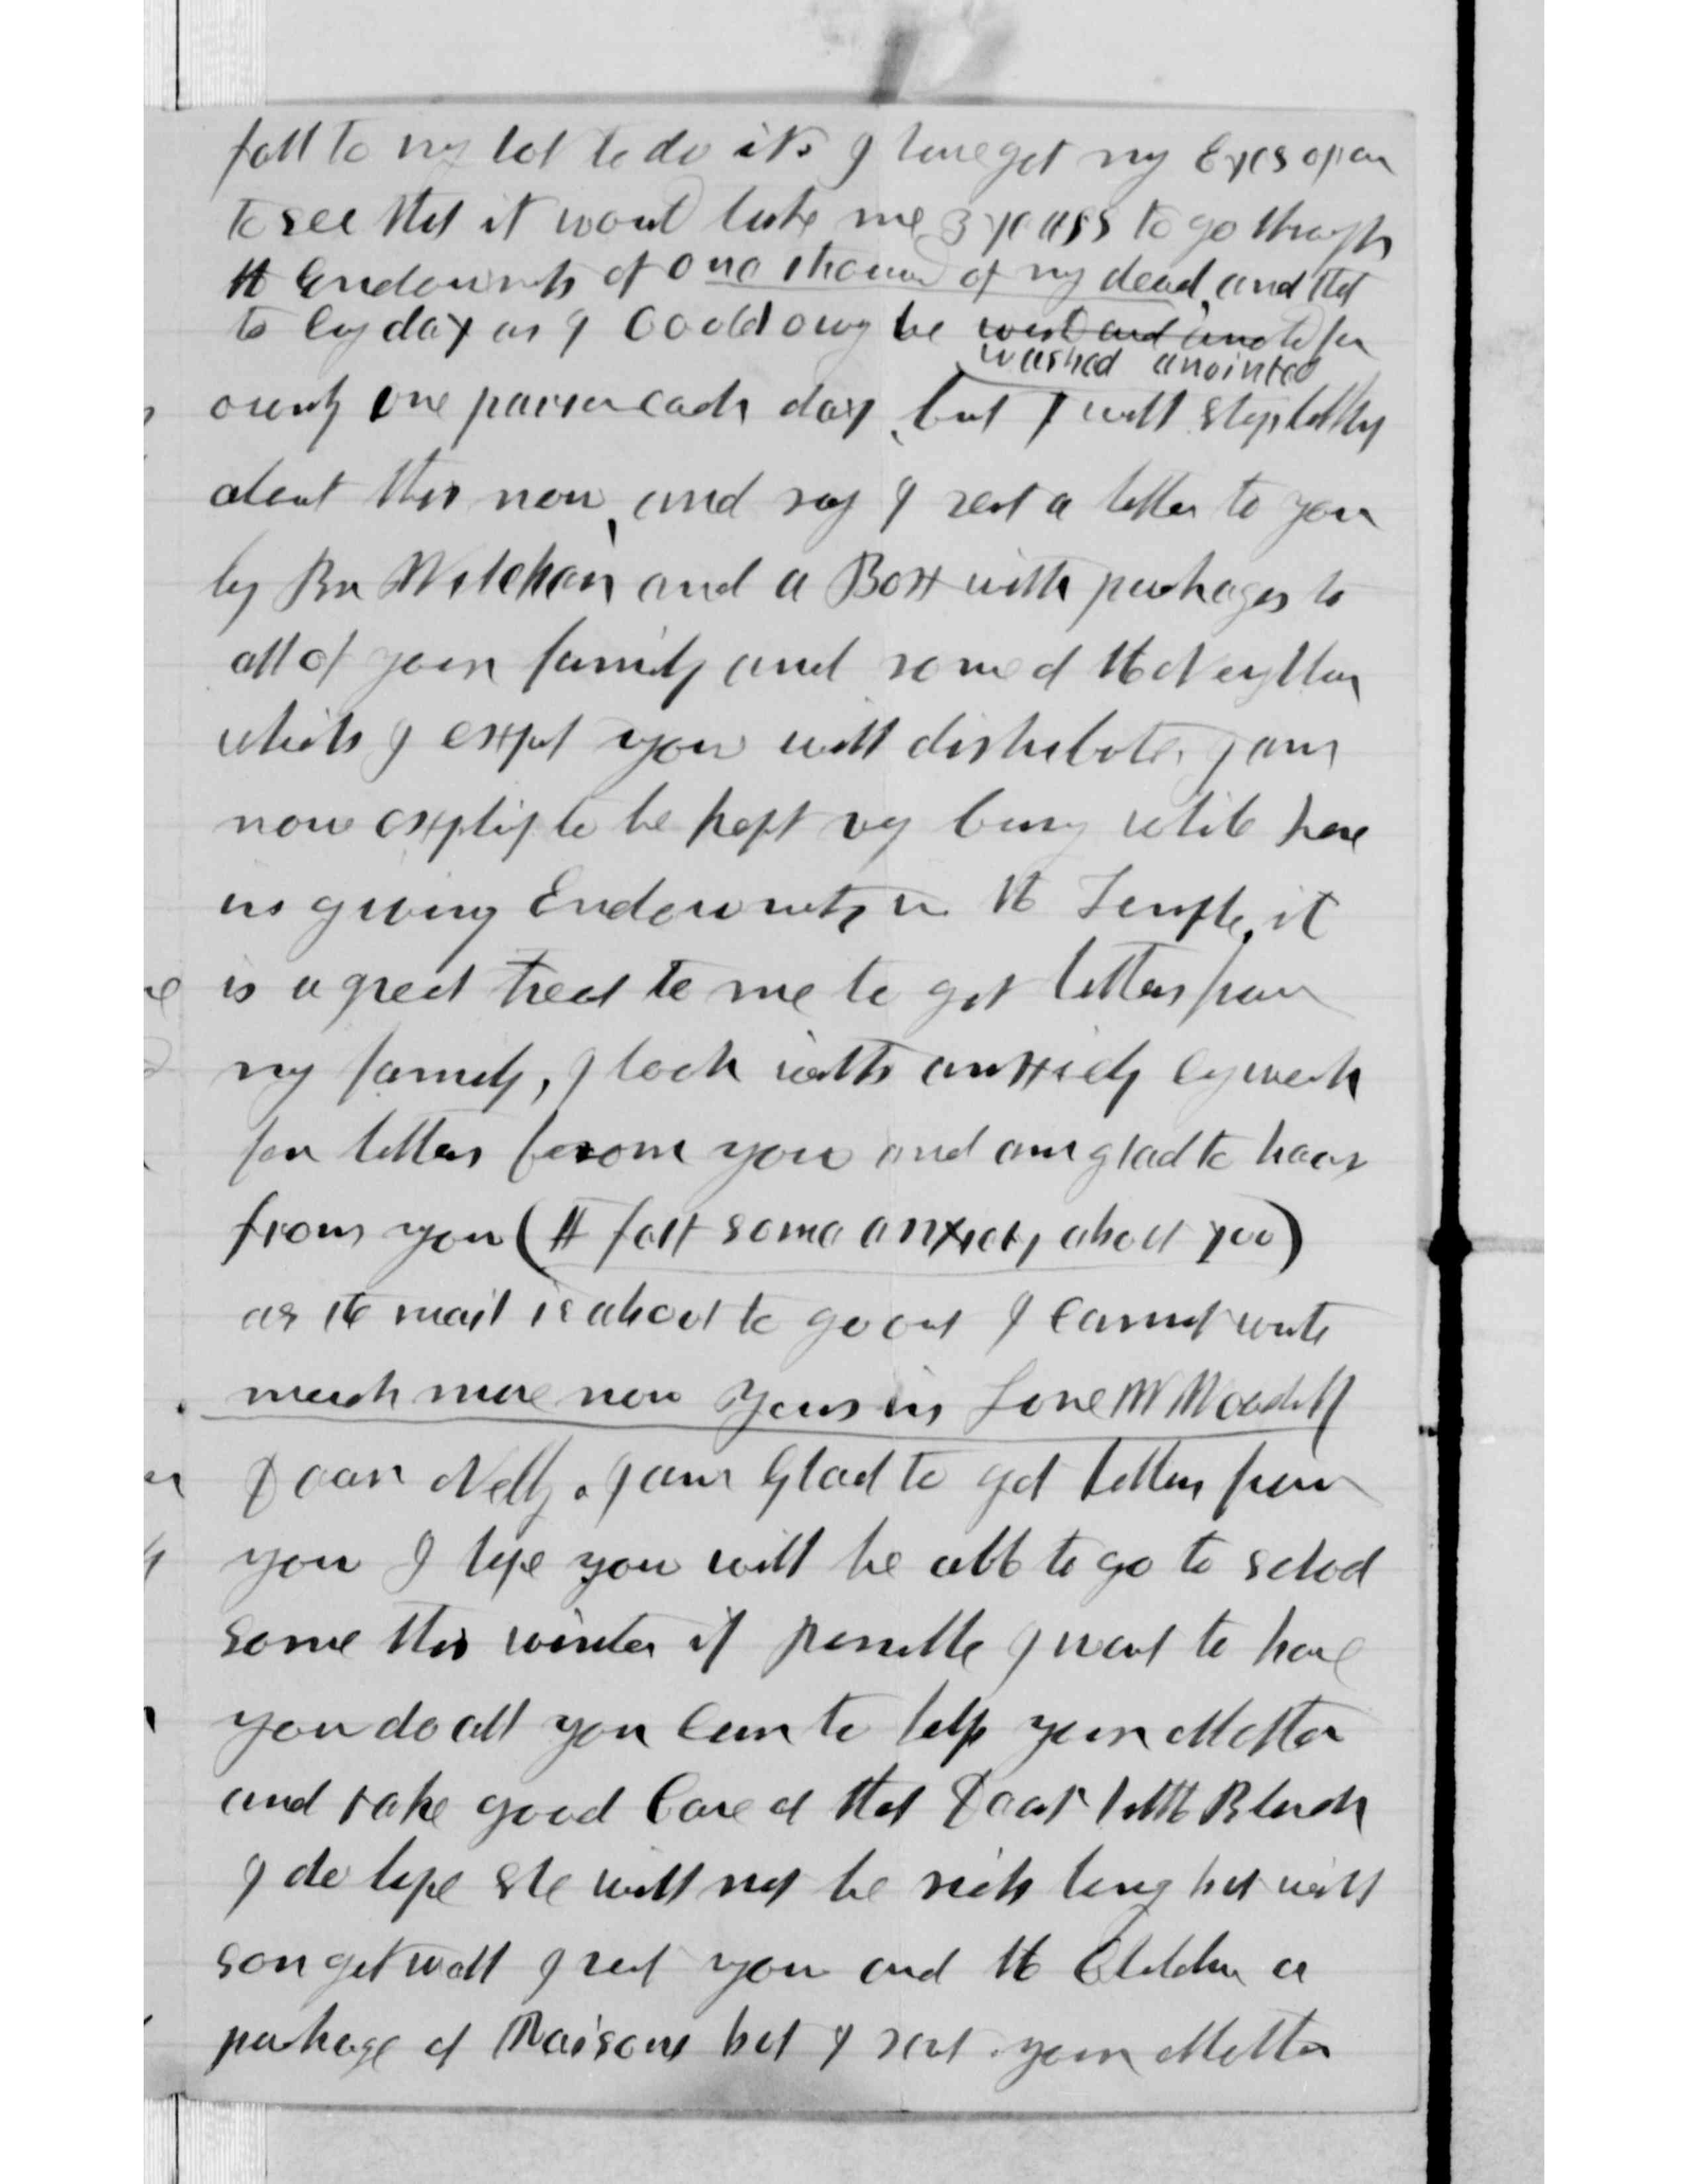 fall to my lot to do it. I have got my Eyes open
to see that it would take me 3 years to go through
the Endowments of one thousand of my dead, and that
to evry day as I Coould ownly be washd and anointed for
washed anointed
ownly one person each day, but I will stop talking
about this now, and say I sent a letter to you
by Br and a Box with packages to
all of your family and some of the Neighbors
which I expect you will distribute, I am
now expecting to be kept very busy while here
in giving Endowments in the Temple, it
is a great treat to me to get letters from
my family, I look with anxxiety evry week
for letters from you and am glad to hear
from you (I felt some anxiety about you)
as the mail is about to go out I Cannot write
much more now Yours in Love W Woodruff
Dear Nelly. I am Glad to get letters from
you I hope you will be able to go to school
some this winter if possible I want to have
you do all you Can to help your Mother
and take good Care of that Dear little Blanch
I do hope she will not be sick long but will
soon get well I sent you and the Children a
package of Raisons but I sent your Mother